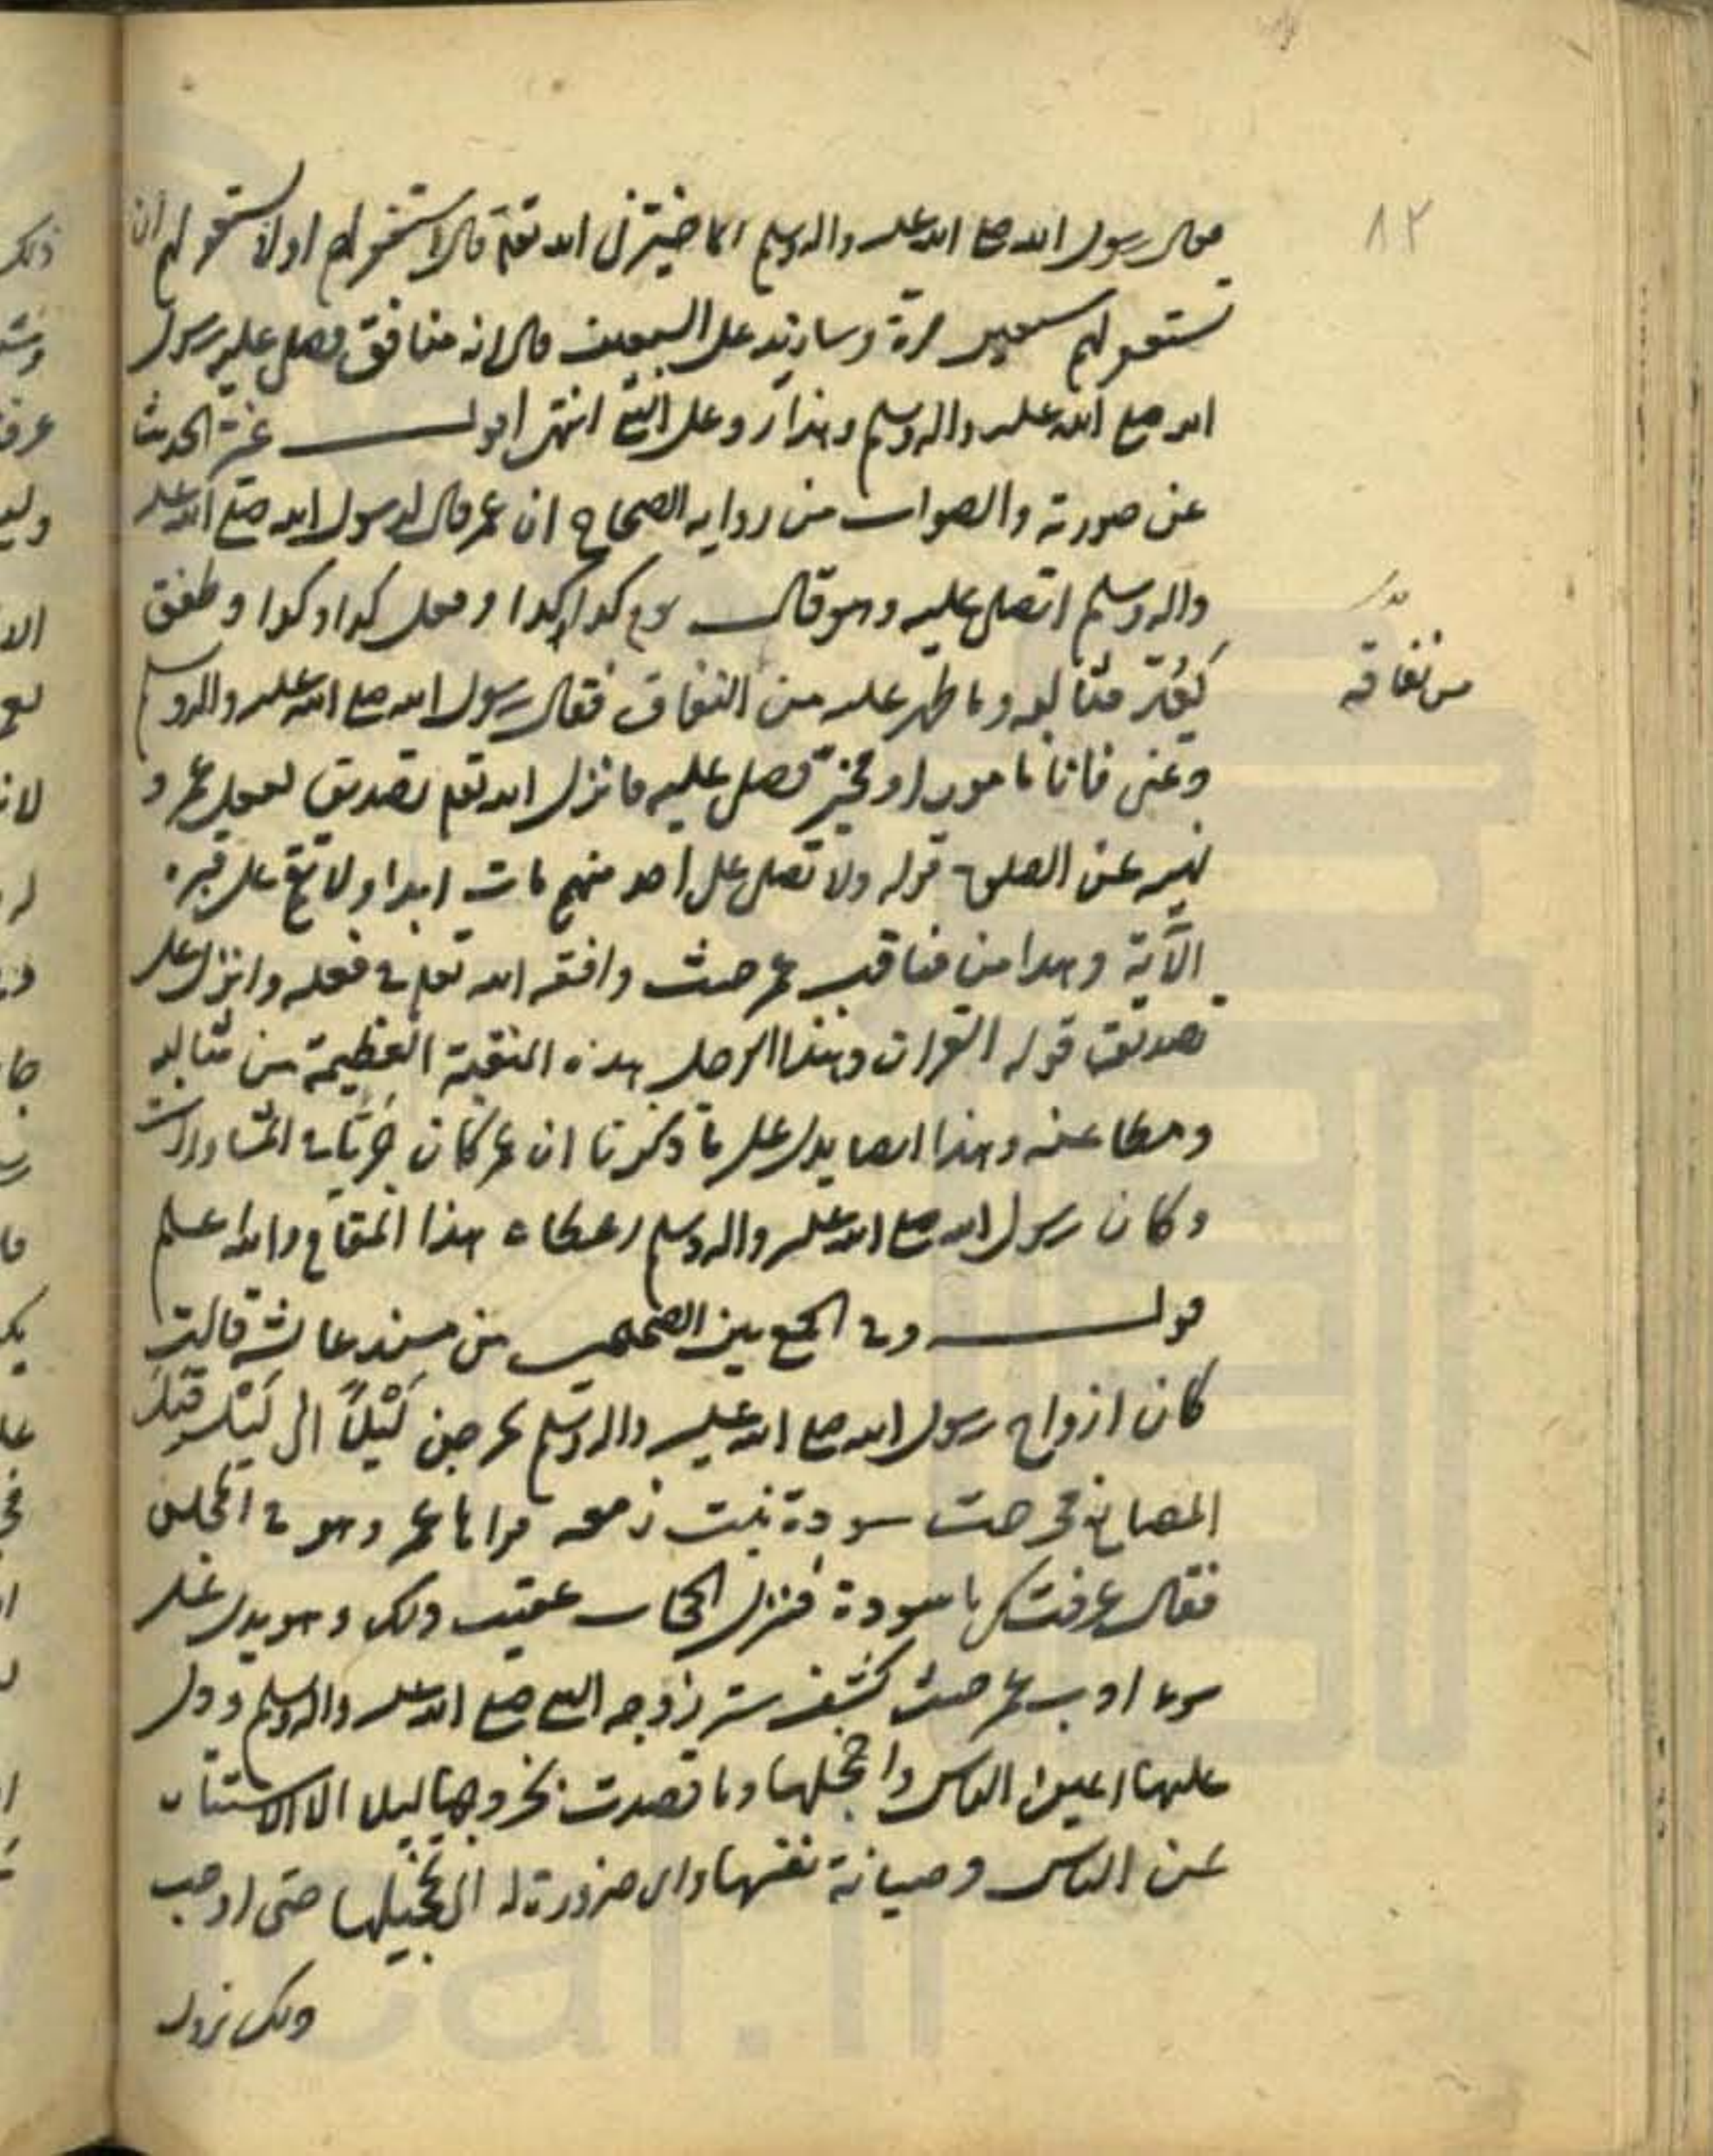 ٨٢
فقال رسول الله صلع الله عليه واله وسلم انما خيرني الله تعلم قال استغفر لهم او لا تستغفر لهم ان
تستغفر لهم سبعين مرة وسازيد على السبعين قال انه منافق فصلى عليه رسول
الله صلع الله عليه واله وسلم وهذا رد على النبي انتهى اقول غير الحديث
عن صورته والصواب من رواية الصحاح ان عمر قال لرسول الله صلع الله عليه
واله وسلم اتصلى عليه وهو قال يوم كذا كذا وفعل كذا وكذا وطفق
يعد مثالبه وما ظهر عليه من النفاق فقال رسول الله صلع الله عليه واله وسلم
من نفاقه
دعنى فانا مامور او مخير فصلى عليه فانزل الله تعلم تصديق لفعل عمر و
نهيه عن الصلوة قوله ولا تصل على احد منهم مات ابدا ولا تقم على قبره
الآية وهذا من مناقب عمر حيث وافقه الله تعلم في فعله وانزل على
تصديق قوله القران وهذا الرجل هذه المنقبة العظيمة من مثالبه
ومطاعنه وهذا ايضا يدل على ما ذكرنا ان عمر كان جريا في المشاورات
وكان رسول الله صلع الله عليه واله وسلم اعطاه هذا المقام والله علم
قوله وفي الجمع بين الصحيحين من مسند عائشة قالت
كان ازواج رسول الله صلع الله عليه واله وسلم يخرجن ليلاً الى ليل قبل
المصانع فخرجت سودة بنت زمعه فراها عمر وهو في المجلس
فقال عرفتك يا سودة فنزل الحجاب عقيب ذلك وهو يدل على
سوء ادب عمر حيث كشف ستر زوجه النبي صلع الله عليه واله وسلم ودل
عليها اعين الناس واخجلها وما قصدت بخروجها ليلا الا الاستتار
عن الناس وصيانة نفسها واى ضرورة له الى تخجيلها حتى اوجب
ذلك نزول